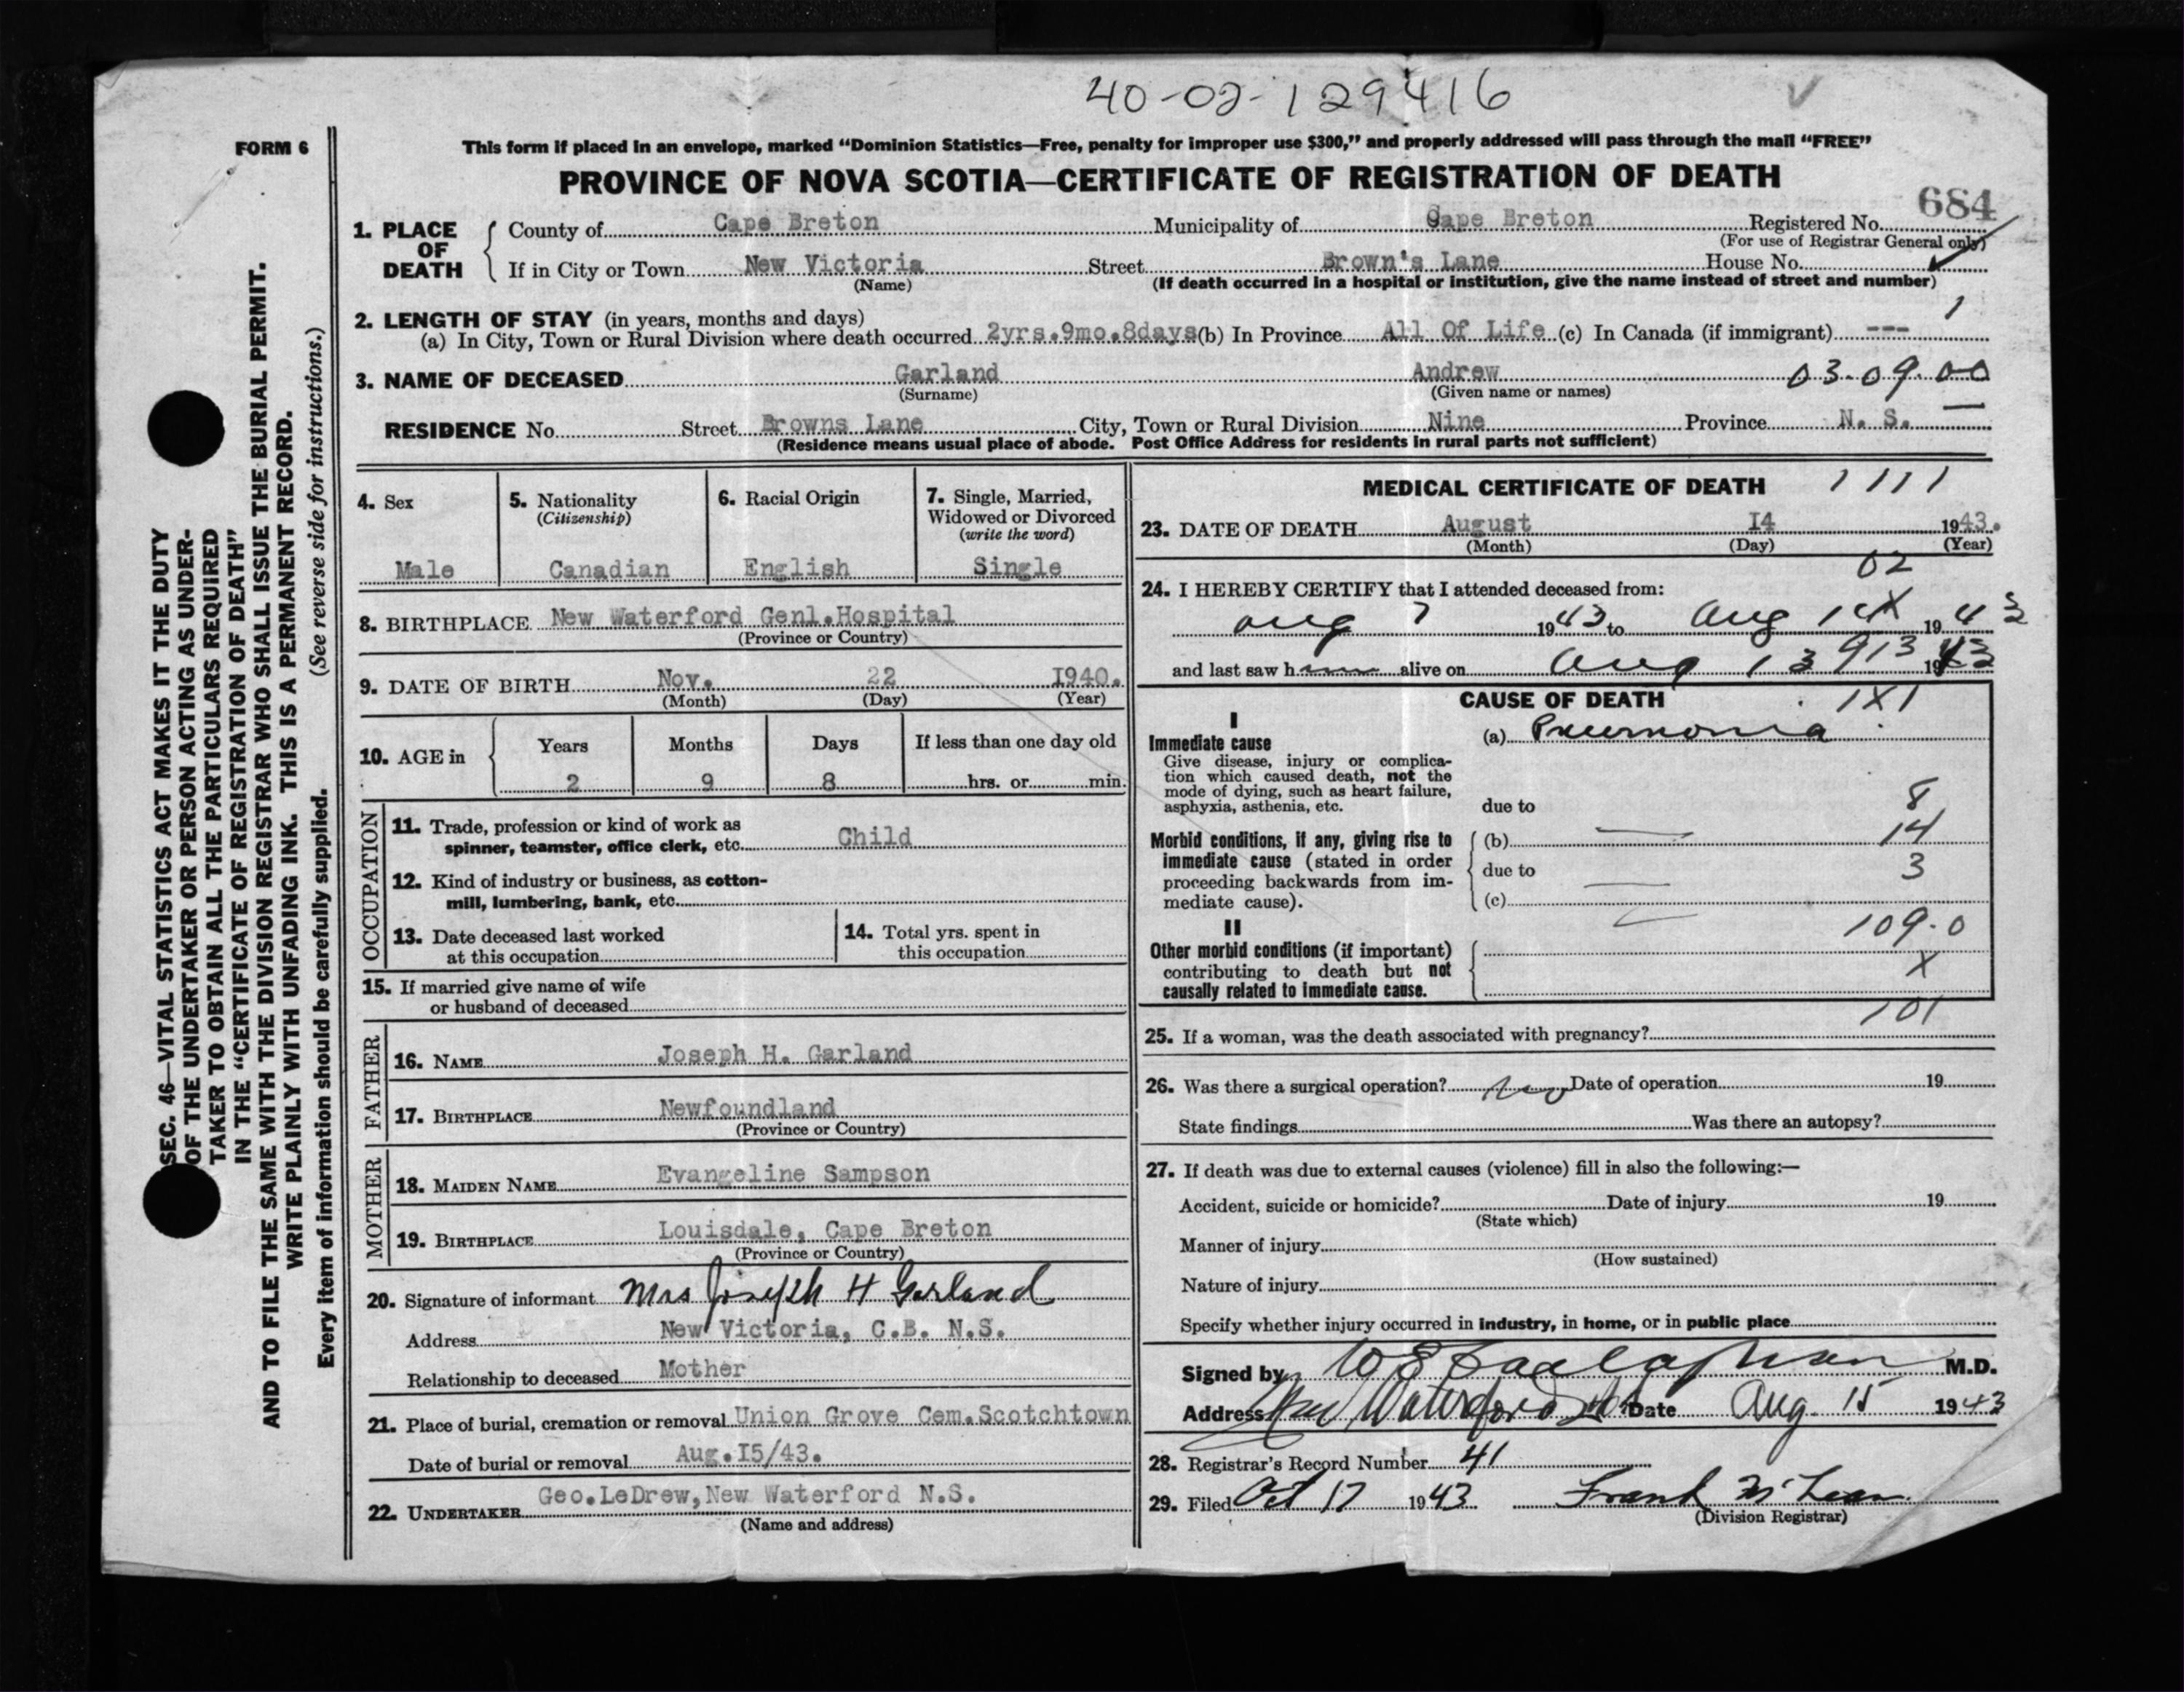 40-02-129416
FORM 6
This form if placed in an envelope, marked “Dominion Statistics—Free, penalty for improper use $300,” and properly addressed will pass through the mail “FREE”
PROVINCE OF NOVA SCOTIA—CERTIFICATE OF REGISTRATION OF DEATH
684
1. PLACE OF DEATH { County of Cape Breton Municipality of Cape Breton Registered No.
(For use of Registrar General only)
If in City or Town New Victoria Street Brown's Lane House No.
(Name) (If death occurred in a hospital or institution, give the name instead of street and number)
1
2. LENGTH OF STAY (in years, months and days)
(a) In City, Town or Rural Division where death occurred 2yrs.9mo.8days (b) In Province All Of Life (c) In Canada (if immigrant) ---
3. NAME OF DECEASED Garland Andrew 03.09.00
(Surname) (Given name or names)
RESIDENCE No. Street Browns Lane City, Town or Rural Division Nine Province N. S.
(Residence means usual place of abode. Post Office Address for residents in rural parts not sufficient)
4. Sex
Male
5. Nationality
(Citizenship)
Canadian
6. Racial Origin
English
7. Single, Married,
Widowed or Divorced
(write the word)
Single
8. BIRTHPLACE New Waterford Genl.Hospital
(Province or Country)
9. DATE OF BIRTH Nov. 22 1940.
(Month) (Day) (Year)
10. AGE in { Years Months Days If less than one day old
2 9 8 hrs. or min.
OCCUPATION
11. Trade, profession or kind of work as
spinner, teamster, office clerk, etc. Child
12. Kind of industry or business, as cotton-
mill, lumbering, bank, etc.
13. Date deceased last worked
at this occupation
14. Total yrs. spent in
this occupation
15. If married give name of wife
or husband of deceased
FATHER
16. NAME Joseph H. Garland
17. BIRTHPLACE Newfoundland
(Province or Country)
MOTHER
18. MAIDEN NAME Evangeline Sampson
19. BIRTHPLACE Louisdale, Cape Breton
(Province or Country)
20. Signature of informant Mrs Joseph H Garland
Address New Victoria, C.B. N.S.
Relationship to deceased Mother
21. Place of burial, cremation or removal Union Grove Cem.Scotchtown
Date of burial or removal Aug.I5/43.
22. UNDERTAKER Geo.LeDrew,New Waterford N.S.
(Name and address)
MEDICAL CERTIFICATE OF DEATH 1111
23. DATE OF DEATH August I4 1943.
(Month) (Day) (Year)
02
24. I HEREBY CERTIFY that I attended deceased from:
Aug 7 1943 to Aug 14 1943
and last saw h alive on Aug 13 913 1943
CAUSE OF DEATH 1X1
I
Immediate cause
Give disease, injury or complica-
tion which caused death, not the
mode of dying, such as heart failure,
asphyxia, asthenia, etc.
(a) Pneumonia
due to 8
Morbid conditions, if any, giving rise to
immediate cause (stated in order
proceeding backwards from im-
mediate cause).
(b) 14
due to 3
(c)
II 109.0
Other morbid conditions (if important)
contributing to death but not
causally related to immediate cause.
X
101
25. If a woman, was the death associated with pregnancy?
26. Was there a surgical operation? No Date of operation 19
State findings Was there an autopsy?
27. If death was due to external causes (violence) fill in also the following:—
Accident, suicide or homicide? Date of injury 19
(State which)
Manner of injury
(How sustained)
Nature of injury
Specify whether injury occurred in industry, in home, or in public place
Signed by M.D.
Address New Waterford Date Aug. 15 1943
28. Registrar's Record Number 41
29. Filed Oct 17 1943 Frank McLean
(Division Registrar)
SEC. 46—VITAL STATISTICS ACT MAKES IT THE DUTY
OF THE UNDERTAKER OR PERSON ACTING AS UNDER-
TAKER TO OBTAIN ALL THE PARTICULARS REQUIRED
IN THE “CERTIFICATE OF REGISTRATION OF DEATH”
AND TO FILE THE SAME WITH THE DIVISION REGISTRAR WHO SHALL ISSUE THE BURIAL PERMIT.
WRITE PLAINLY WITH UNFADING INK. THIS IS A PERMANENT RECORD.
Every item of information should be carefully supplied. (See reverse side for instructions.)